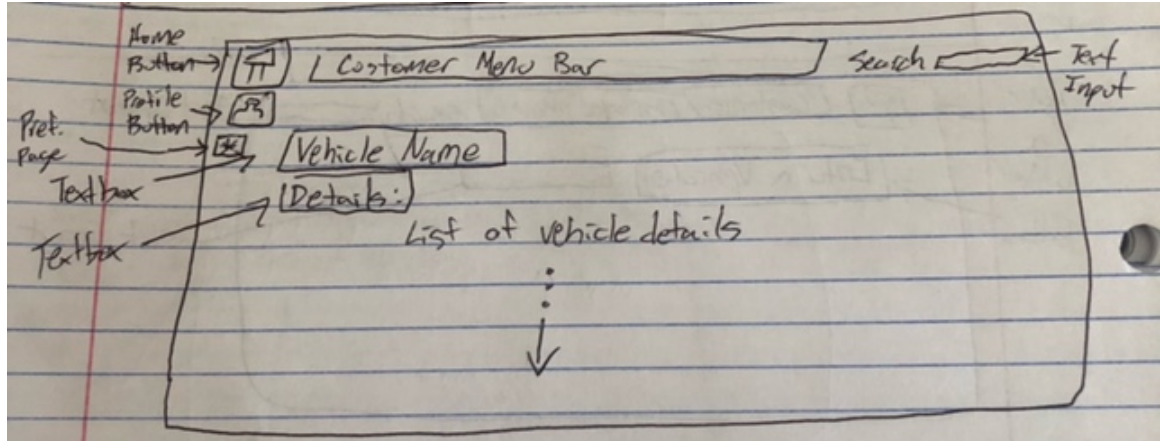 Home
Button
Customer Menu Bar
Search
Text
Input
Profile
Button
Pref.
Page
Vehicle Name
Textbox
Details:
Textbox
List of vehicle details